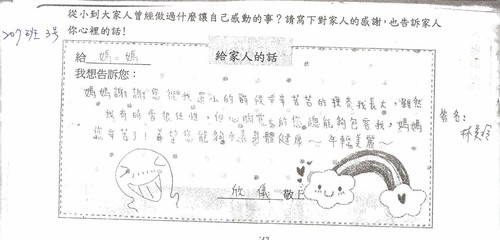 從小到大家人曾經做過什麼讓自己感動的事？請寫下對家人的感謝，也告訴家人
你心裡的話！
207班 3號
給家人的話
給 媽媽
我想告訴您：
媽媽謝謝您從我還小的時候辛辛苦苦的撫養我長大，雖然
我有時會很任性，但心胸寬大的您總能夠包容我，媽媽
您辛苦了！希望您能夠永遠身體健康～年輕美麗～
欣儀 敬上
簽名：